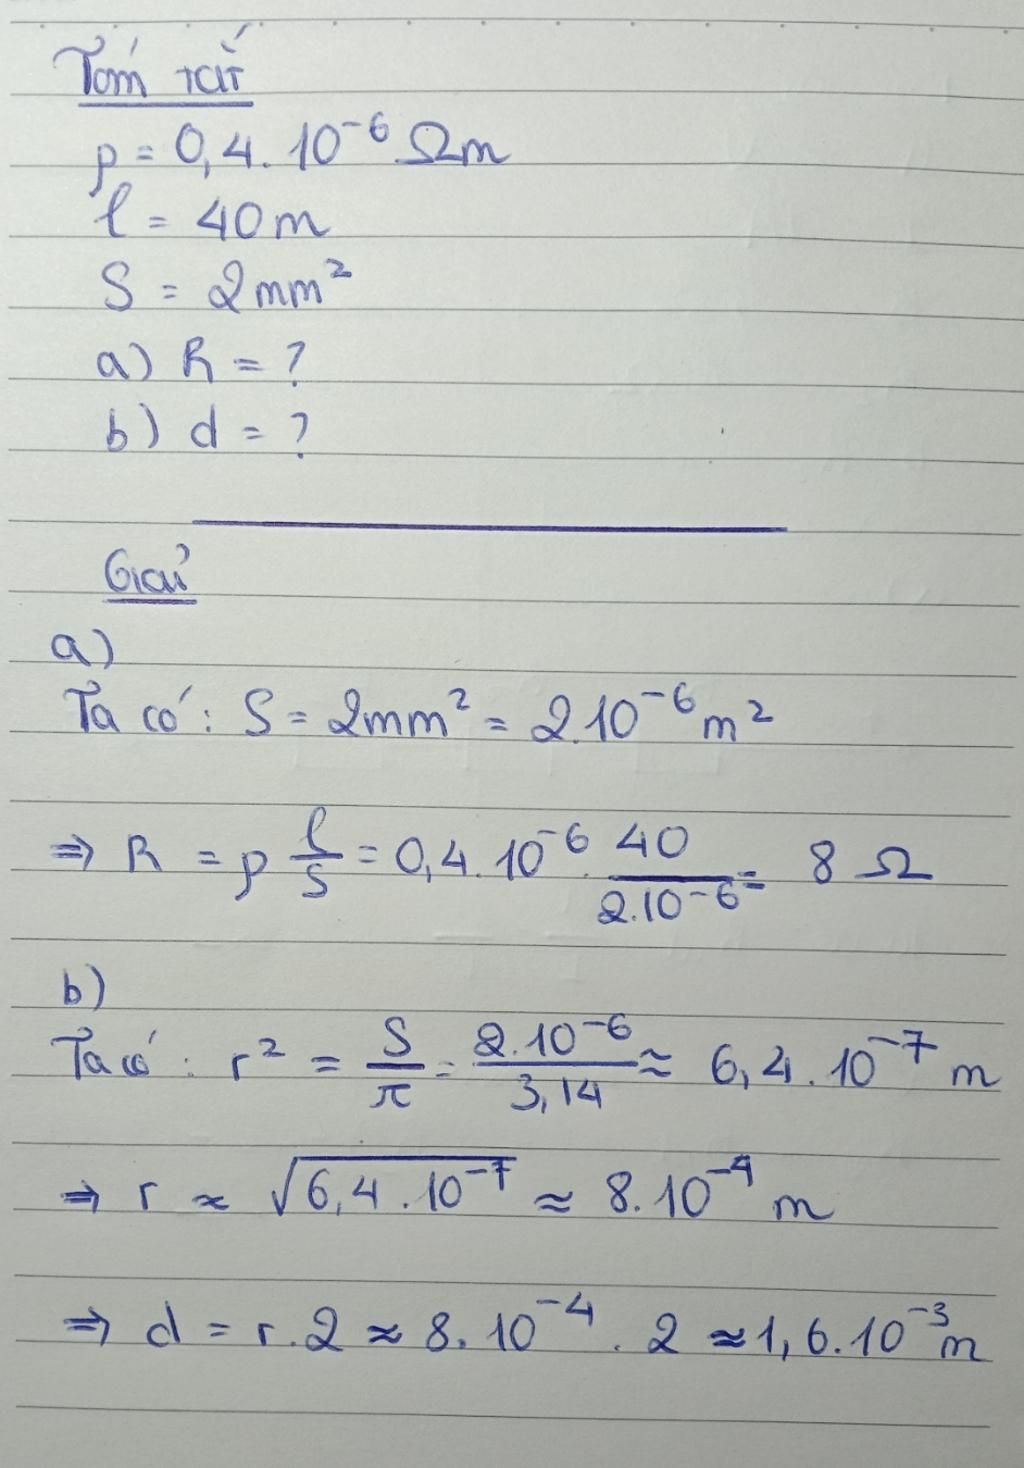 Tóm tắt
ρ = 0,4. 10⁻⁶ Ωm
l = 40m
S = 2mm²
a) R = ?
b) d = ?
Giải
a)
Ta có: S = 2mm² = 2.10⁻⁶ m²
⇒ R = ρ l/S = 0,4. 10⁻⁶ . 40/2.10⁻⁶ = 8 Ω
b)
Ta có: r² = S/π = 2.10⁻⁶/3,14 ≈ 6,4. 10⁻⁷ m
⇒ r ≈ √6,4.10⁻⁷ ≈ 8.10⁻⁴ m
⇒ d = r.2 ≈ 8. 10⁻⁴ . 2 ≈ 1,6.10⁻³ m